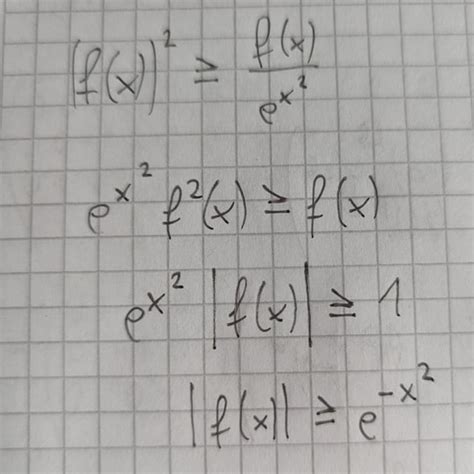 (f(x))² ≥ f(x)/e^(x²)
e^(x²) f²(x) ≥ f(x)
e^(x²) |f(x)| ≥ 1
|f(x)| ≥ e^(-x²)